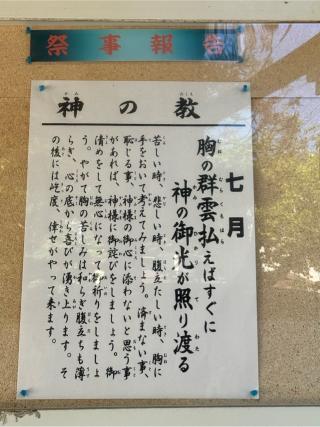 祭事報告
神の教
七月
胸の群雲払えばすぐに
神の御光が照り渡る
苦しい時、悲しい時、腹立たしい時、胸に
手をおいて考えてみましょう。済まない事、
恥じる事、神様の御心に添わないと思う事
があれば、神様に御詫びをしましょう。御
清めをして無心になって御祈りをしましょ
う。やがて胸の苦しみは和らぎ腹立ちも薄
らぎ、心の底から喜びが湧き上ります。そ
の後には屹度、倖せがやって来ます。